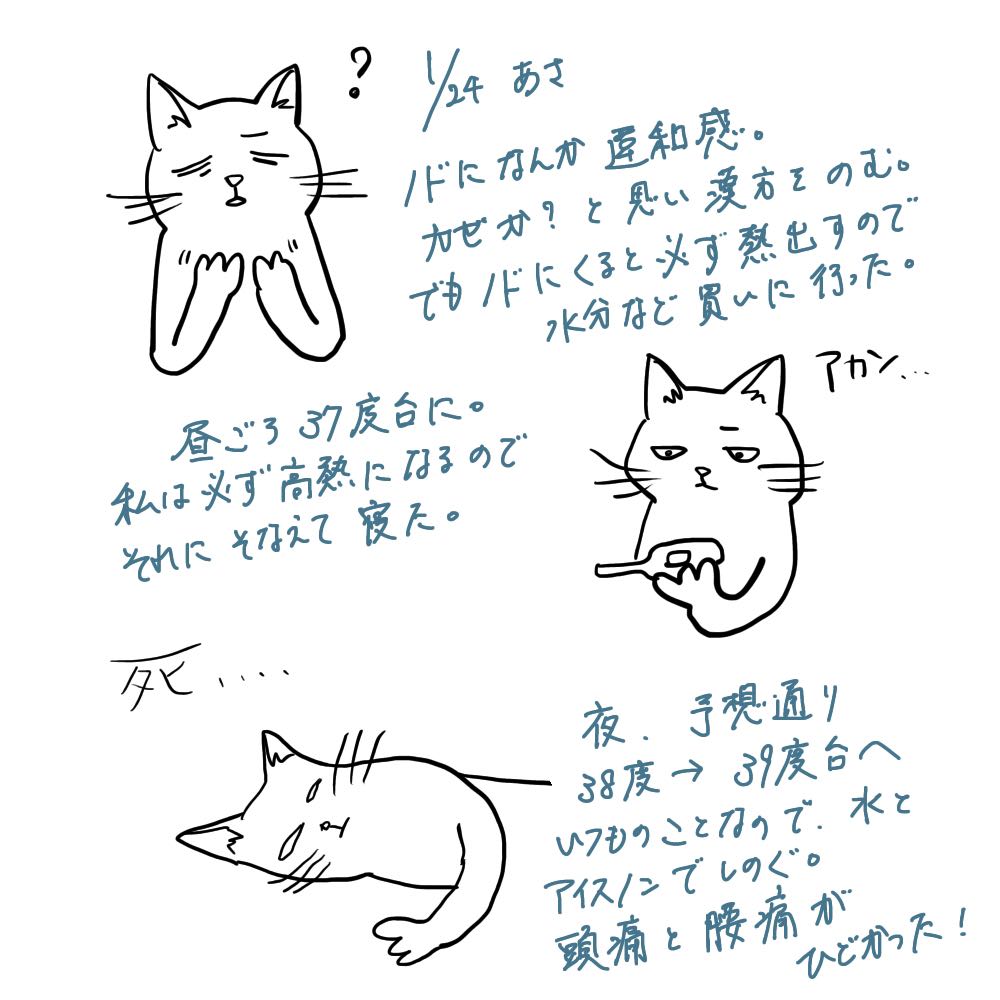 ?
1/24 あさ
ノドになんか違和感。
カゼか?と思い漢方をのむ。
でもノドにくると必ず熱出すので
水分など買いに行った。
アカン...
昼ごろ37度台に。
私は必ず高熱になるので
それにそなえて寝た。
死....
夜、予想通り
38度→39度台へ
いつものことなので、水と
アイスノンでしのぐ。
頭痛と腰痛が
ひどかった!